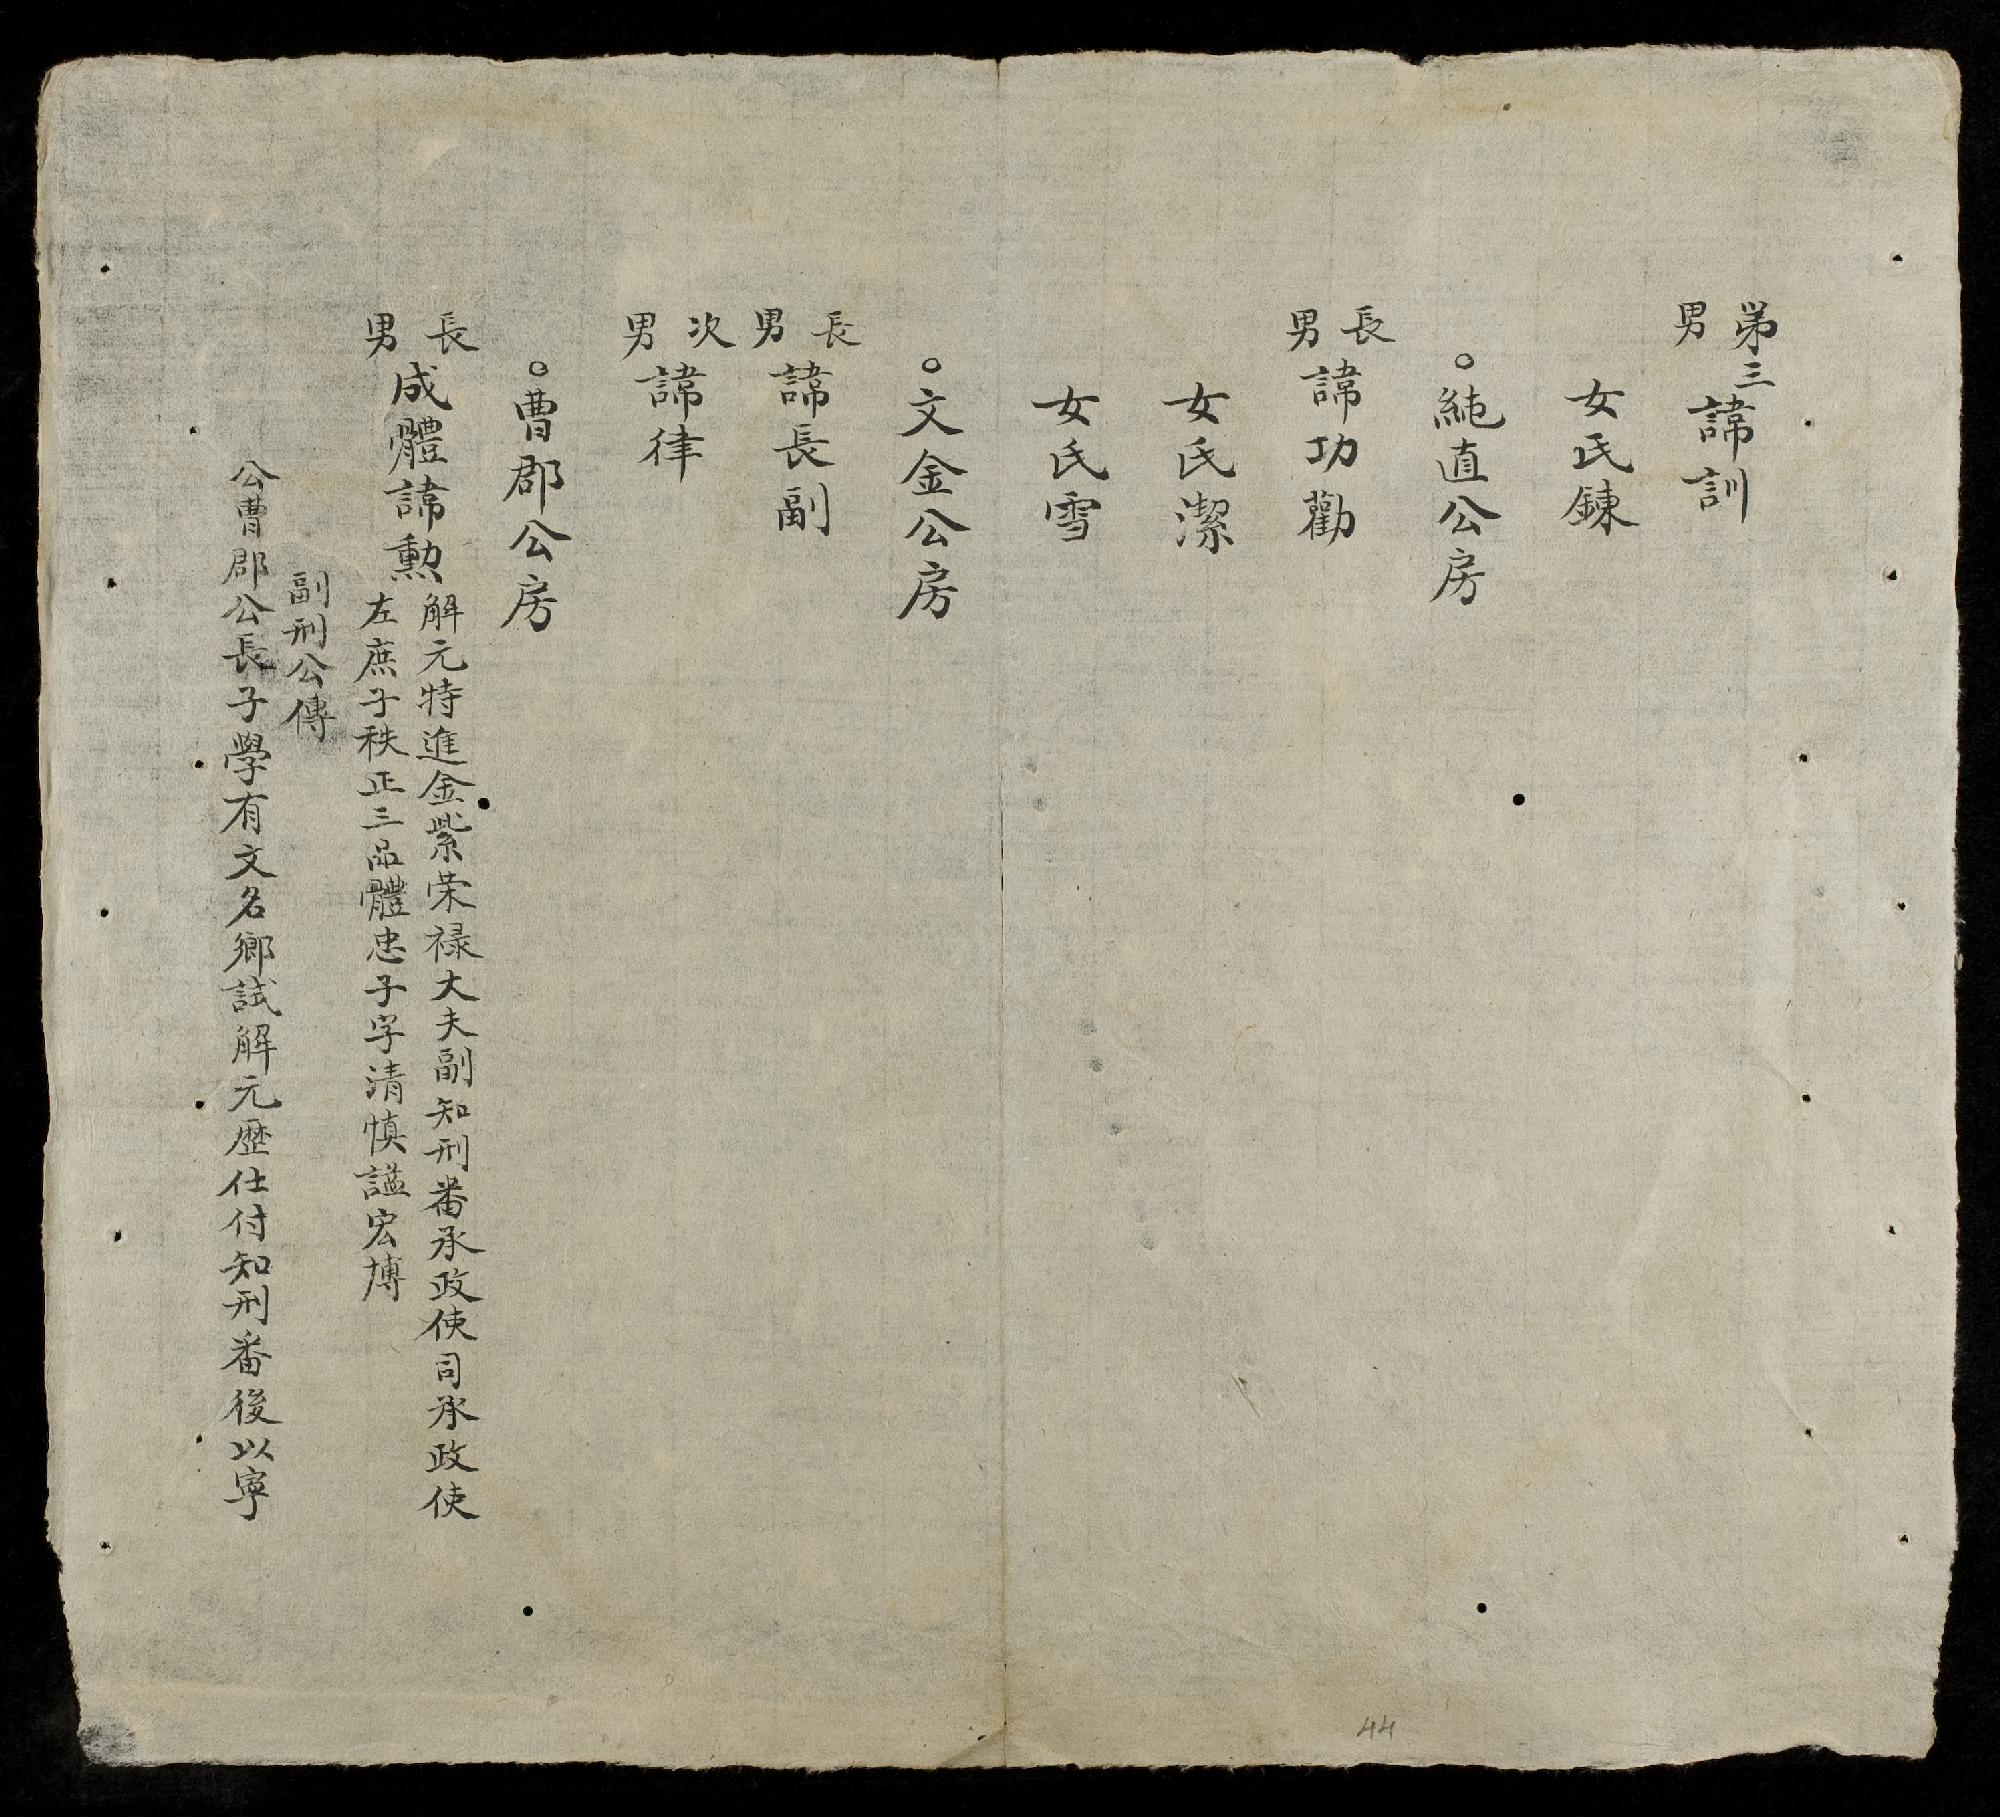 第三男諱訓
女氏鍊
○純直公房
長男諱功勸
女氏潔
女氏雪
○文金公房
長男諱長副
次男諱律
○曹郡公房
長男成體諱勲
解元特進金紫荣禄大夫副知刑番承政使司承政使
左庶子秩正三品體忠子字清慎謚宏博
副刑公傳
公曹郡公長子學有文名鄉試解元歷仕付知刑番後以寜
44